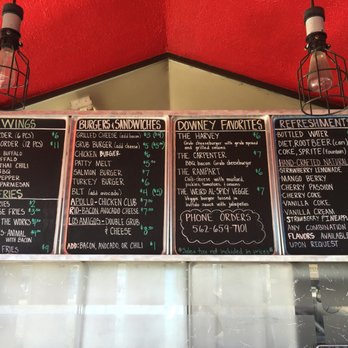 WINGS
ORDER (6 PCS) $6
ORDER (12 PCS) $11
BUFFALO
THAI CHILI
BBQ
PEPPER
PARMESAN
FRIES
FRIES
ANIMAL
WITH BACON
FRIES $9
BURGERS & SANDWICHES
GRILLED CHEESE (add bacon)
GRUB BURGER (add bacon)
CHICKEN BURGER $6
PATTY MELT $5
SALMON BURGER $7
TURKEY BURGER $6
BLT $6
APOLLO - CHICKEN CLUB $7
RIO - BACON AVOCADO CHEESE
LOS AMIGOS - DOUBLE GRUB
& CHEESE
ADD: BACON, AVOCADO, OR CHILI $1
DOWNEY FAVORITES
THE HARVEY $6
Grub cheeseburger with grub spread
and grilled onions
THE CARPENTER $7
BBQ bacon Grub cheeseburger
THE RAMPART $6
pickles, tomatoes, & onions
THE WEIRD AL SPICY VEGGIE $7
Veggie burger tossed in
buffalo sauce with jalapeños
PHONE ORDERS
562-659-7101
*Sales tax not included in prices*
REFRESHMENTS
BOTTLED WATER
DIET, ROOT BEER (can)
COKE, SPRITE (fountain)
HAND-CRAFTED NATURAL
STRAWBERRY LEMONADE
MANGO BERRY
CHERRY PASSION
CHERRY COKE
VANILLA COKE
VANILLA CREAM
STRAWBERRY PINEAPPLE
ANY COMBINATION
FLAVORS AVAILABLE
UPON REQUEST